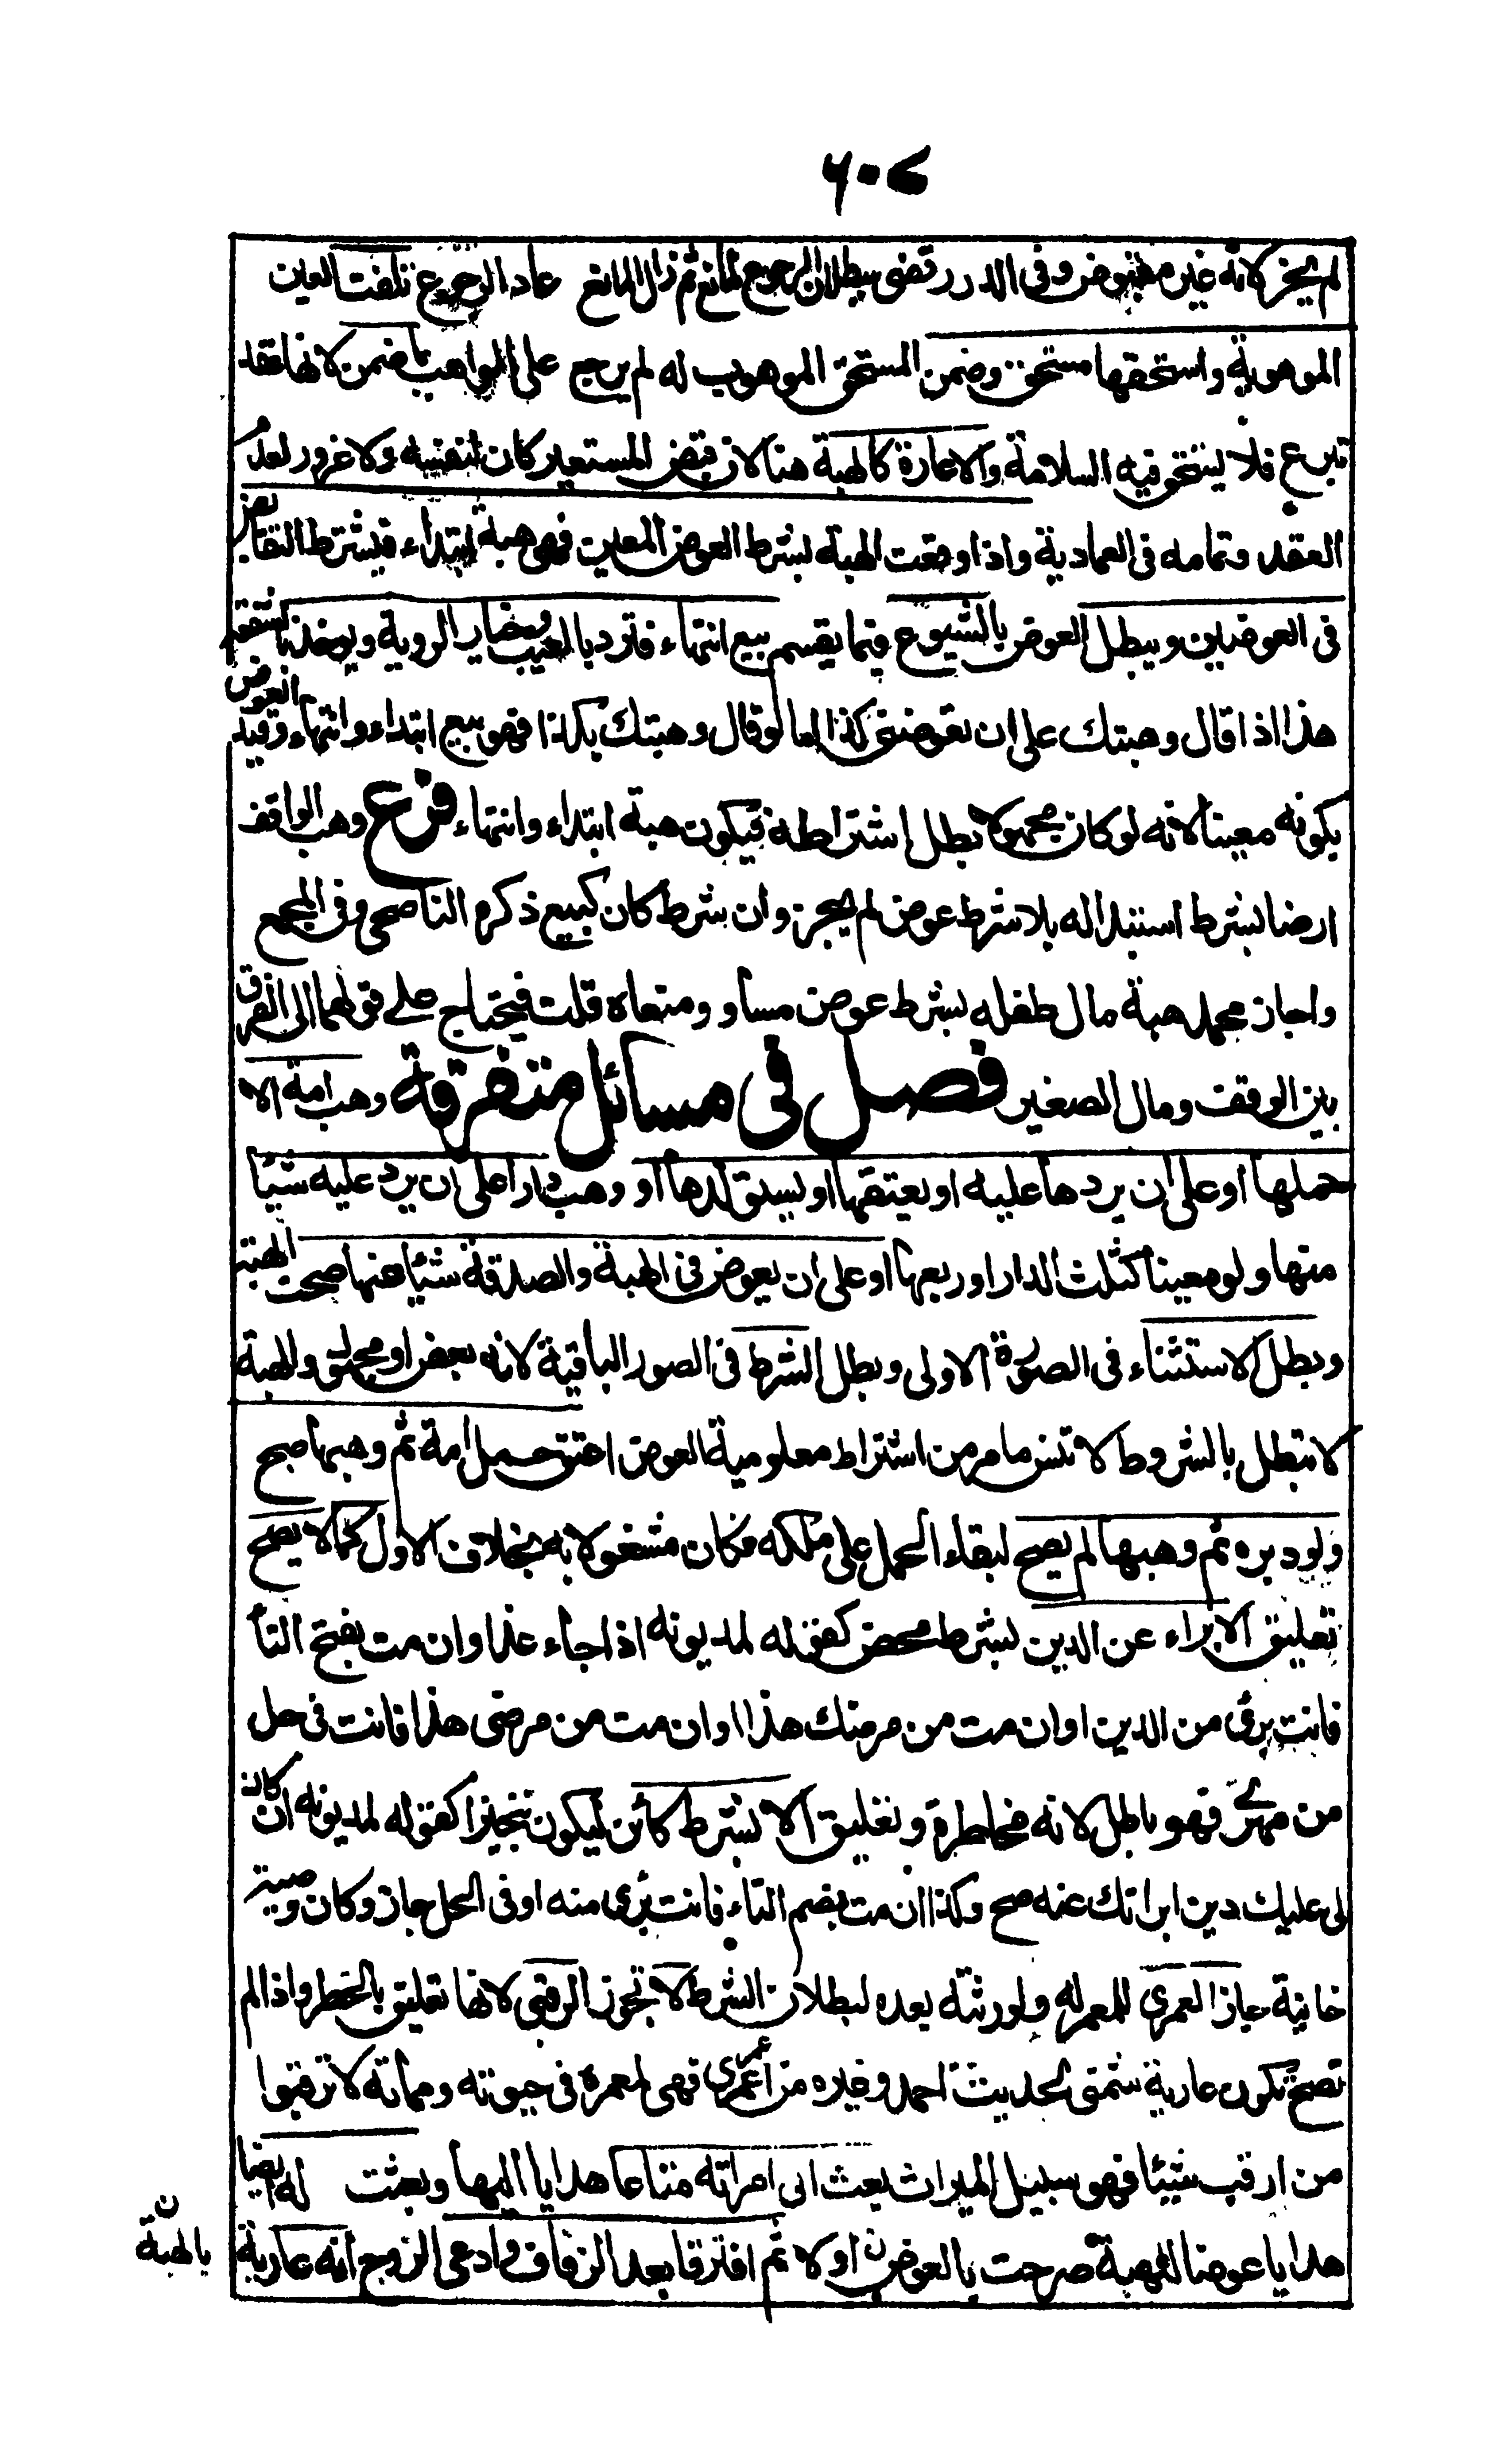 ٦٠٧
لم يجز لانه غير مقبوض وفى الدرر قضى ببطلان الرجوع لمانع ثم زال المانع عاد الرجوع تلفت العين
الموهوبة واستحقها مستحق وضمن المستحق الموهوب له لم يرجع على الواهب بما ضمن لانها عقد
تبرع فلا يستحق فيه السلامة والاعارة كالهبة هنا لان قبض المستعير كان لنفسه ولا غرور لعدم
العقد وتمامه فى العمادية واذا وقعت الهبة بشرط العوض المعين فهى هبة ابتداء فيشترط التقابض
فى العوضين ويبطل العوض بالشيوع فيما يقسم بيع انتهاء فترد بالعيب وخيار الروية ويوخذ بالشفعة
هذا اذا قال وهبتك على ان تعوضنى كذا اما لو قال وهبتك بكذا فهو بيع ابتداء وانتهاء وقيد العوض
بكونه معينا لانه لو كان مجهولا بطل اشتراطه فيكون هبة ابتداء وانتهاء فرع وهب الواقف
ارضا بشرط استبداله بلا شرط عوض لم يجز وان بشرط كان كبيع ذكره الناصحى وفى المجمع
واجاز محمد هبة مال طفله بشرط عوض مساو ومنعاه قلت فيحتاج على قولهما الى الفرق
بين الوقف ومال الصغير فصل فى مسائل متفرقة وهب امة الا
حملها او على ان يردها عليه او يعتقها او يستولدها او وهب دارا على ان يرد عليه شيئا
منها ولو معينا كثلث الدار او ربعها او على ان يعوض فى الهبة والصدقة شيئا عنها صحت الهبة
وبطل الاستثناء فى الصورة الاولى وبطل الشرط فى الصور الباقية لانه بعض او مجهول والهبة
لا تبطل بالشروط لا تنس ما مر من اشتراط معلومية العوض اعتق حمل امة ثم وهبها صح
ولو دبره ثم وهبها لم يصح لبقاء الحمل على ملكه فكان مشغولا به بخلاف الاول كما لا يصح
تعليق الابراء عن الدين بشرط محض كقوله لمديونه اذا جاء غدا وان مت بفتح التا
فانت برئ من الدين او ان مت من مرضك هذا او ان مت من مرضى هذا فانت فى حل
من مهرى فهو باطل لانه مخاطرة وتعليق الا بشرط كائن ليكون تنجيزا كقوله لمديونه ان كان
لى عليك دين ابراتك عنه صح وكذا ان مت بضم التاء فانت برى منه او فى الحل جاز وكان وصية
خانية جاز العمرى للمعمر له ولورثته بعده لبطلان الشرط لا تجوز الرقبى لانها تعليق بالخطر واذا لم
تصح تكون عارية شمنى لحديث احمد وغيره من اعمر عمرى فهى لمعمره فى حيوته ومماته لا ترقبوا
من ارقب شيئا فهو سبيل الميراث بعث الى امراته متاعا هدايا اليها وبعثت له ايضا
هدايا عوضا للهبة صرحت بالعوض او لا ثم افترقا بعد الزفاف وادعى الزوج انه عارية
ن
بالهبة